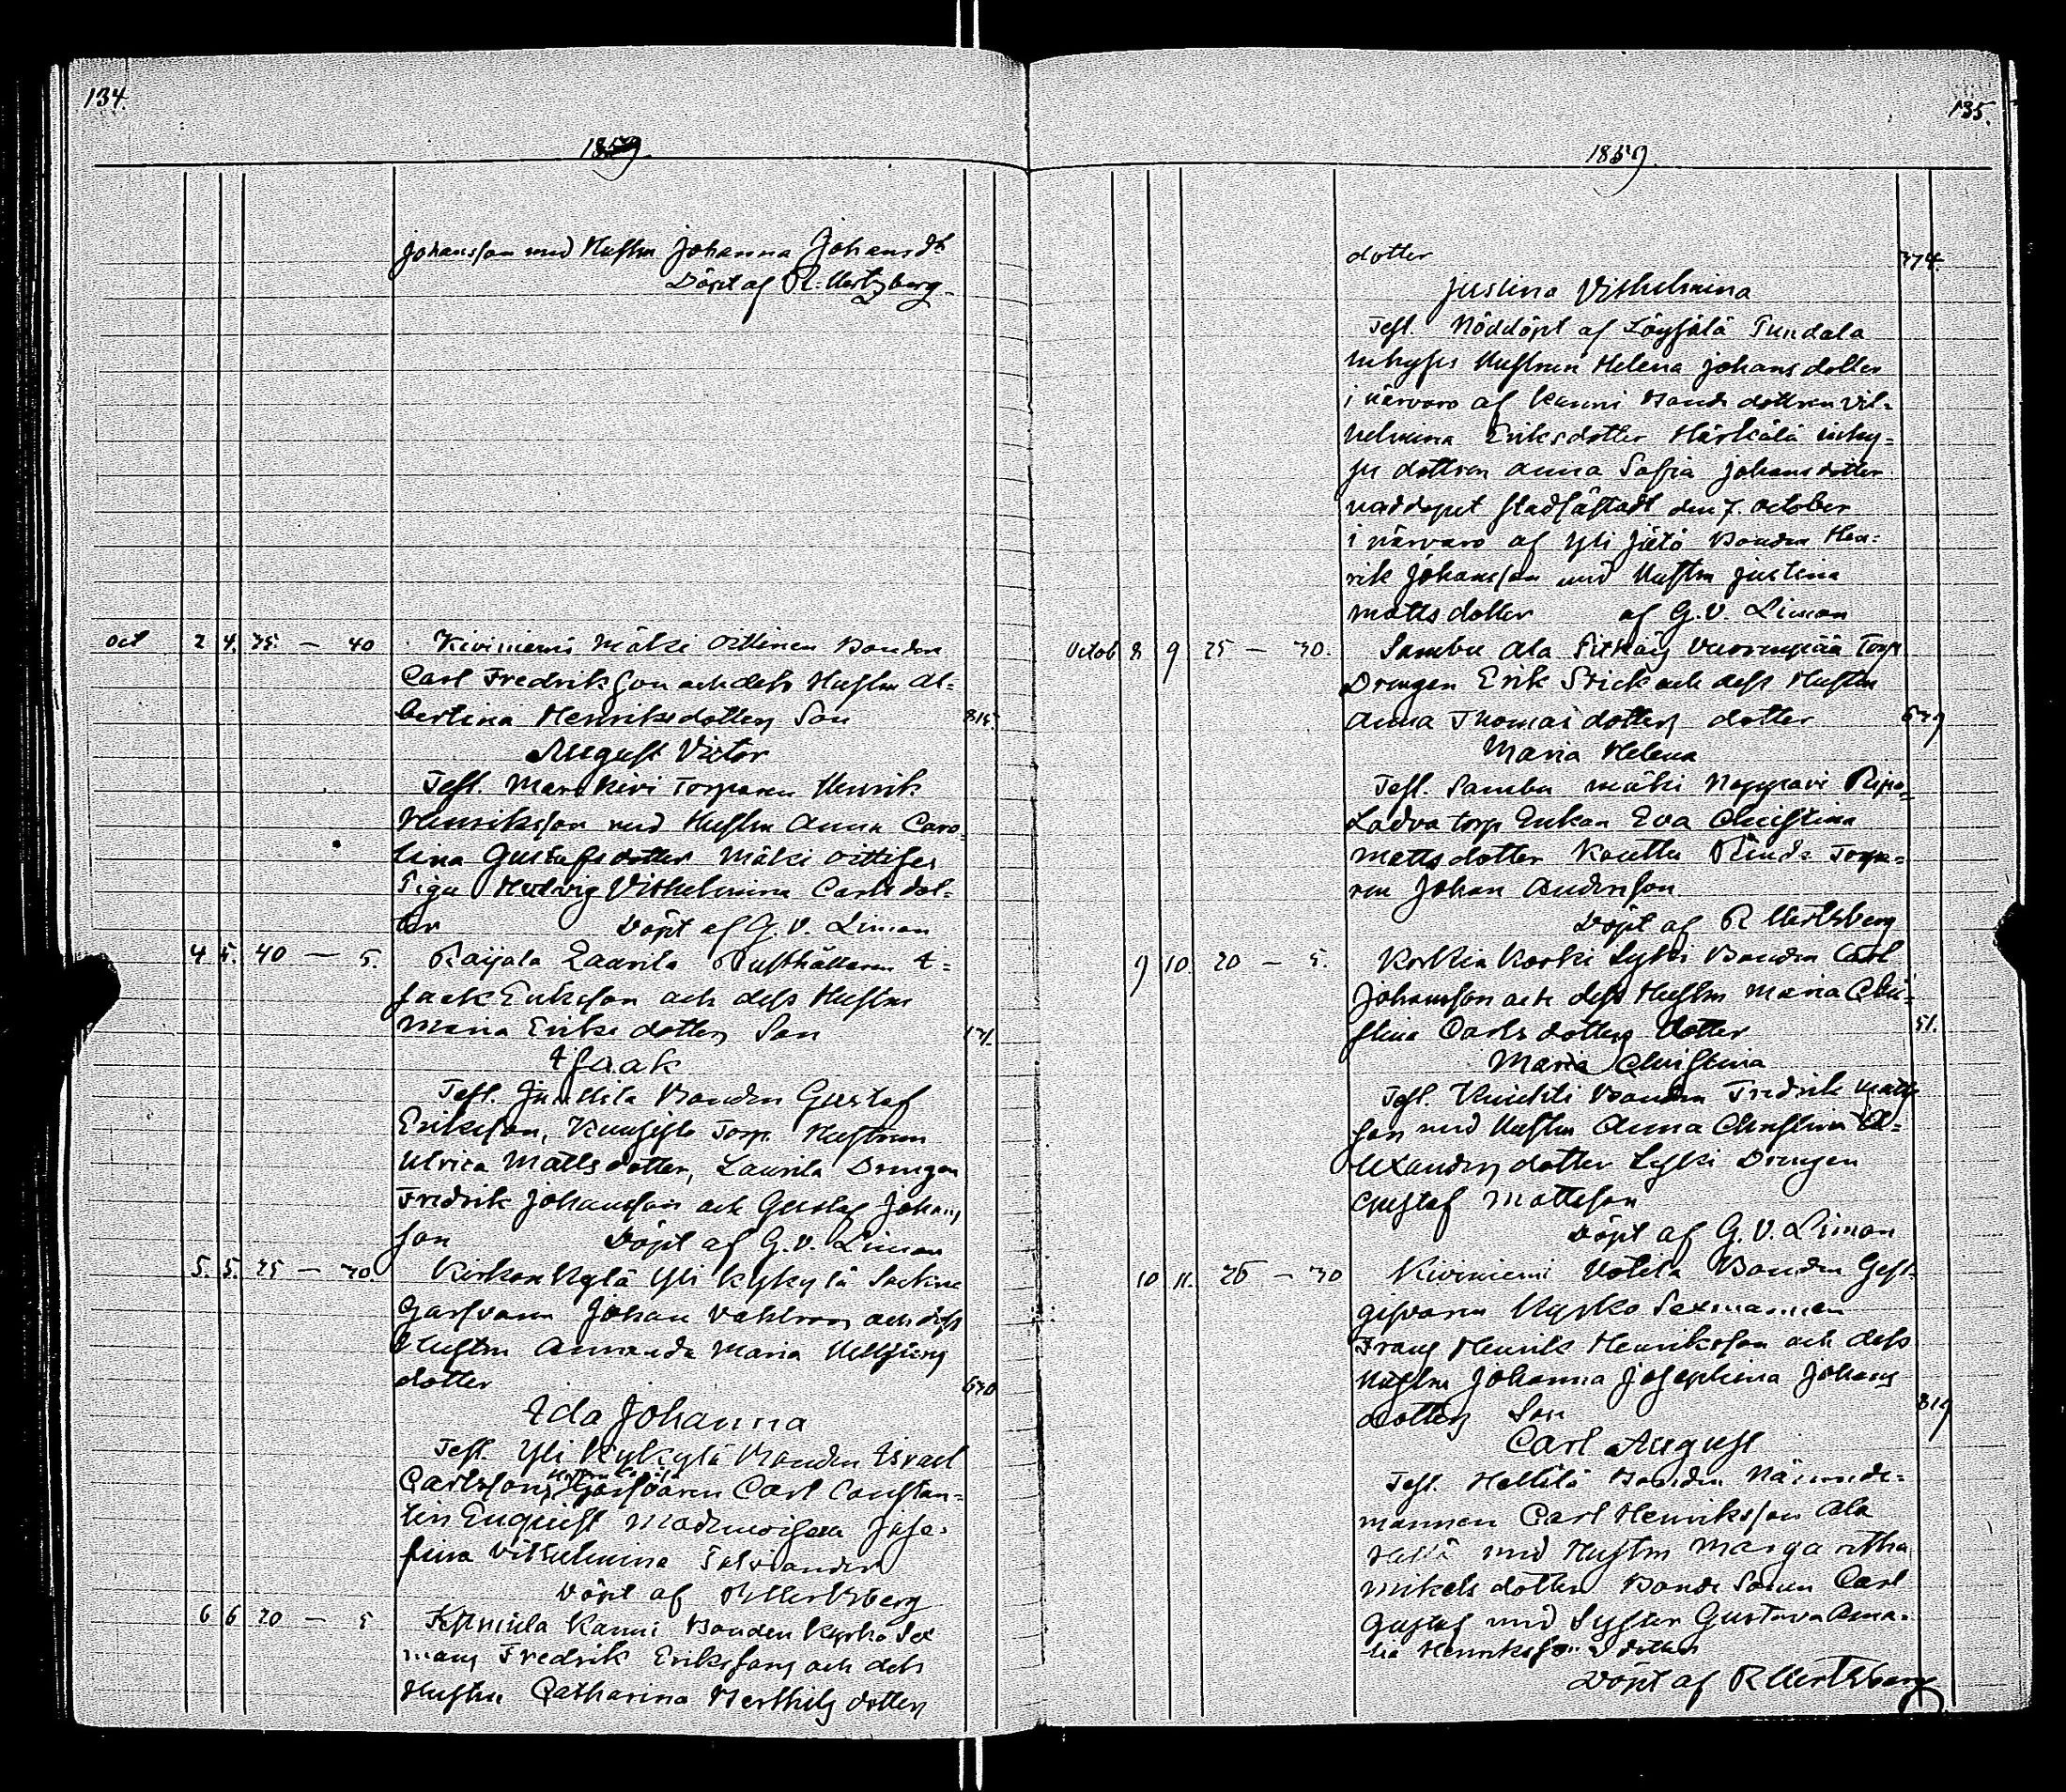 134.
1859.
Johansson med Hustru Johanna Johansdr
Döpt af R. Hertzberg.
Oct 2 4. 35. — 40 Kiviniemi Mäki Oittinen Bonden
Carl Fredriksson och dess Hustru Al=
bertina Henriksdotters Son 815.
August Victor
Test. Torparen Henrik
Henriksson med Hustru Anna Caro=
lina Gustafsdotter Mäki Oittises
Piga Hedvig Vilhelmina Carlsdot=
ter Döpt af G. V. Liman
4 5. 40 — 5. Raijala Laurila Rusthållaren I=
saak Eriksson och dess Hustru
Maria Eriksdotters Son 171.
Isaak
Test. Junttila Bonden Gustaf
Eriksson, Torp. Hustrun
Ulrica Mattsdotter, Laurila Drengen
Fredrik Johansson och Gustaf Johans
son Döpt af G. V. Liman
5. 5. 25 — 30. Kirkonkylä Yli Kykylä Sockne
Garfvaren Johan och dess
Hustru Amanda Maria
dotter 630
Ida Johanna
Test. Yli Kykylä Bonden Israel
Carlsson, Garfvaren Carl Constan=
tin Enqvist Mademoisella Jose=
fina Vilhelmina
Döpt af R Hertzberg
6 6 20 — 5 Kanni Bonden Kyrko Sex
mans Fredrik Erikssons och dess
Hustru Catharina Berthilsdotters
135.
1859.
dotter 374.
Justina Vilhelmina
Test. Nöddöpt af Löysälä Tundala
inhyses Hustrun Helena Johansdotter
i närvaro af Kanni Bonde dottren Vil=
helmina Eriksdotter Härkälä inhy=
ses dottren Anna Sofia Johansdotter
nöddopet stadfästadt den 7. October
i närvaro af Yli Jietö Bonden Hen=
rik Johansson med Hustru Justina
Mattsdotter af G. V. Liman
Octob 8 9 25 — 30. Sambu Ala Pitkäis Vuorenpää Torp
Drengen Erik Stick och dess Hustru
Anna Thomasdotters dotter 679
Maria Helena
Test. Sambu Mäki
Ladva torp Enkan Eva Christina
Mattsdotter Kouttu Torpa=
ren Johan Andersson
Döpt af R Hertzberg
9 10. 20 — 5. Korkia Koski Lyski Bonden Carl
Johansson och dess Hustru Maria Chri=
stina Carlsdotters dotter 51.
Maria Christina
Test. Knihti Bonden Fredrik Matts
son med Hustru Anna Christina A=
lexandersdotter Lyski Drengen
Gustaf Mattsson
Döpt af G. V. Liman
10 11. 26 — 30 Kiviniemi Uotila Bonden Gest=
gifvaren Kyrko Sexmannen
Frans Henrik Henriksson och dess
Hustru Johanna Josephina Johans
dotters Son 819
Carl August
Test. Hellilä Bonden Nämnde=
mannen Carl Henriksson Ala
Hellä med Hustru Margaretha
Mikelsdotter Bonde Sonen Carl
Gustaf med Syster Gustava Ama=
lia Henriksson dotter
Döpt af R Hertzberg